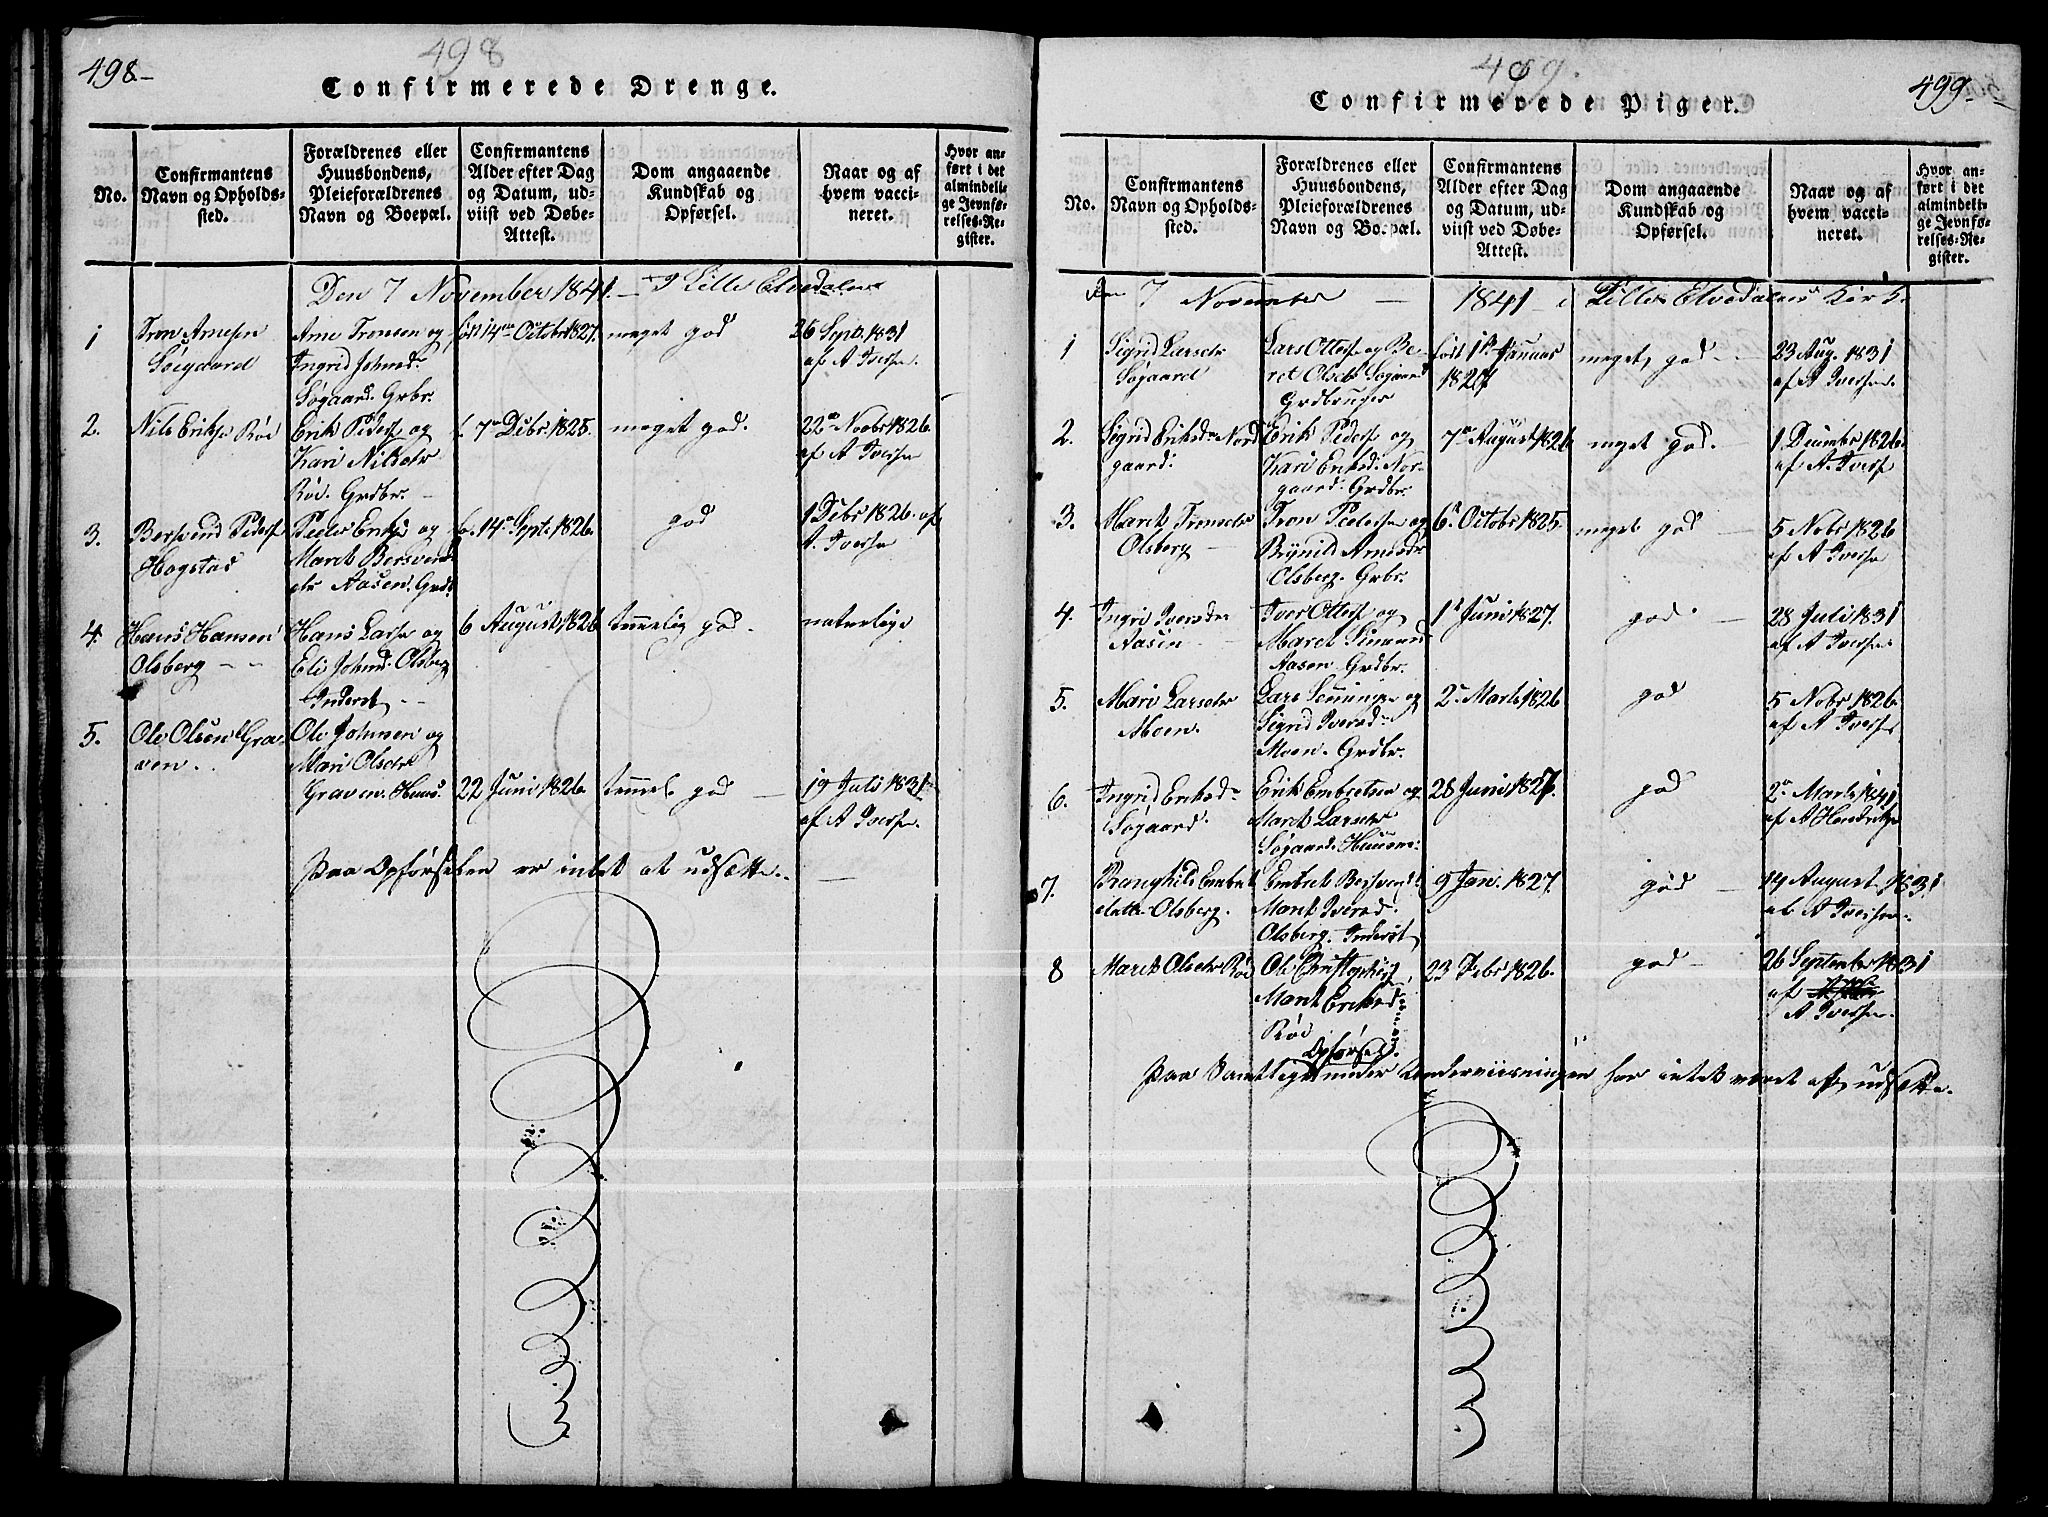 498-
498
Confirmerede Drenge.
No.
Confirmantens
Navn og Opholds-
sted.
Forældrenes eller
Huusbondens,
Pleieforældrenes
Navn og Boepæl.
Confirmantens
Alder efter Dag
og Datum, ud-
viist ved Døbe-
Attest.
Dom angaaende
Kundskab og
Opførsel.
Naar og af
hvem vacci-
neret.
Hvor an-
ført i det
almindeli-
ge Jevnfø-
relses-Re-
gister.
Den 7 November 1841. - i Lille Elvedalen
1
Tron Arnesen
Søegaard
Arne Tronsen og
Ingrid Johnsd:
Søgaard. Grbr.
14de Octobr 1827.
meget god
26 Sept. 1831
af A Iversen.
2.
Nils Eriksen Röe
Erik Peders. og
Kari Nilsdtr
Röe. Grdbr. -
f. 7de Debr. 1825.
meget god.
22de Novbr 1826.
af A Iversen
3.
Bersvend Peders.
Hogstad
Peder Eriks. og
Marit Bersvend-
dtr Aasen. Grdb.
f. 14de Septr 1826.
god
1 Debr 1826. af
A. Iversen
4.
Hans Hansen
Olsberg - -
Hans Larsen og
Eli Johnsd: Olsberg
Inderst - -
6 August 1826
temmelig god.
naturlige
5.
Ole Olsen Gra-
ven.
Ole Johnsen og
Mari Olsdtr
Graven. Huus.
22 Juni 1826.
temmel. god -
19 Juli 1831
af A Iversen.
Paa Opførselen er intet at udsætte. -
499.
499-
Confirmerede Piger.
No.
Confirmantens
Navn og Opholds-
sted.
Forældrenes eller
Huusbondens,
Pleieforældrenes
Navn og Boepæl.
Confirmantens
Alder efter Dag
og Datum, ud-
viist ved Døbe-
Attest.
Dom angaaende
Kundskab og
Opførsel.
Naar og af
hvem vacci-
neret.
Hvor an-
ført i det
almindeli-
ge Jevnfø-
relses-Re-
gister.
Den 7 November - 1841 - i Lille Elvedalens Kirk.
1
Sigrid Larsdtr
Søgaard
Lars Otters. og Be-
ret Olsdtr Søgaard
Grdbruger
født 1ste Januar
1827
meget god -
23 Aug. 1831
af A Iversen.
2.
Sigrid Eriksdr Nord
gaard.
Erik Peders. og
Kari Eriksd: Nor-
gaard. Grdbr.
7de August 1826
meget god.
1 Decembr 1826.
af A. Ivers.
3.
Maret Tronsdtr
Olsberg -
Tron Pedersen og
Brynild Arnesdtr
Olsberg. Grbr.
6te Octobr 1825.
meget god -
5 Nobr 1826
af A Iversen
4.
Ingri Iversdr
Aasen -
Iver Otters. og
Maret
Aasen Grdbr.
1ste Juni 1827.
god. -
28 Juli 1831
af A Iversen.
5.
Mari Larsdtr
Moen.
Lars og
Sigrid Iversd:
Moen. Grdbr.
2den Marts 1826
god
5 Nobr 1826.
af A Iversen
6.
Ingrid Eriksdr
Søgaard.
Erik Embretsen og
Maret Larsdtr
Søgaard. Huusm:
28 Juni 1827.
god
2den Marts 1841
af A Hendriks.
7.
Ranghild Embret
datter Olsberg.
Embret Bersvends.
Marit Iversd:
Olsberg. Inderst
9 Jan. 1827.
god -
19 August 1831
af A Iversen.
8
Marit Olsdtr Röe
Ole Christophers.
Marit Eriksd:
Röe
23 Febr 1826.
god -
26 September 1831
af
A Iversen.
Opførsel
Paa Samtliges under Underviisningen har intet været at udsætte.